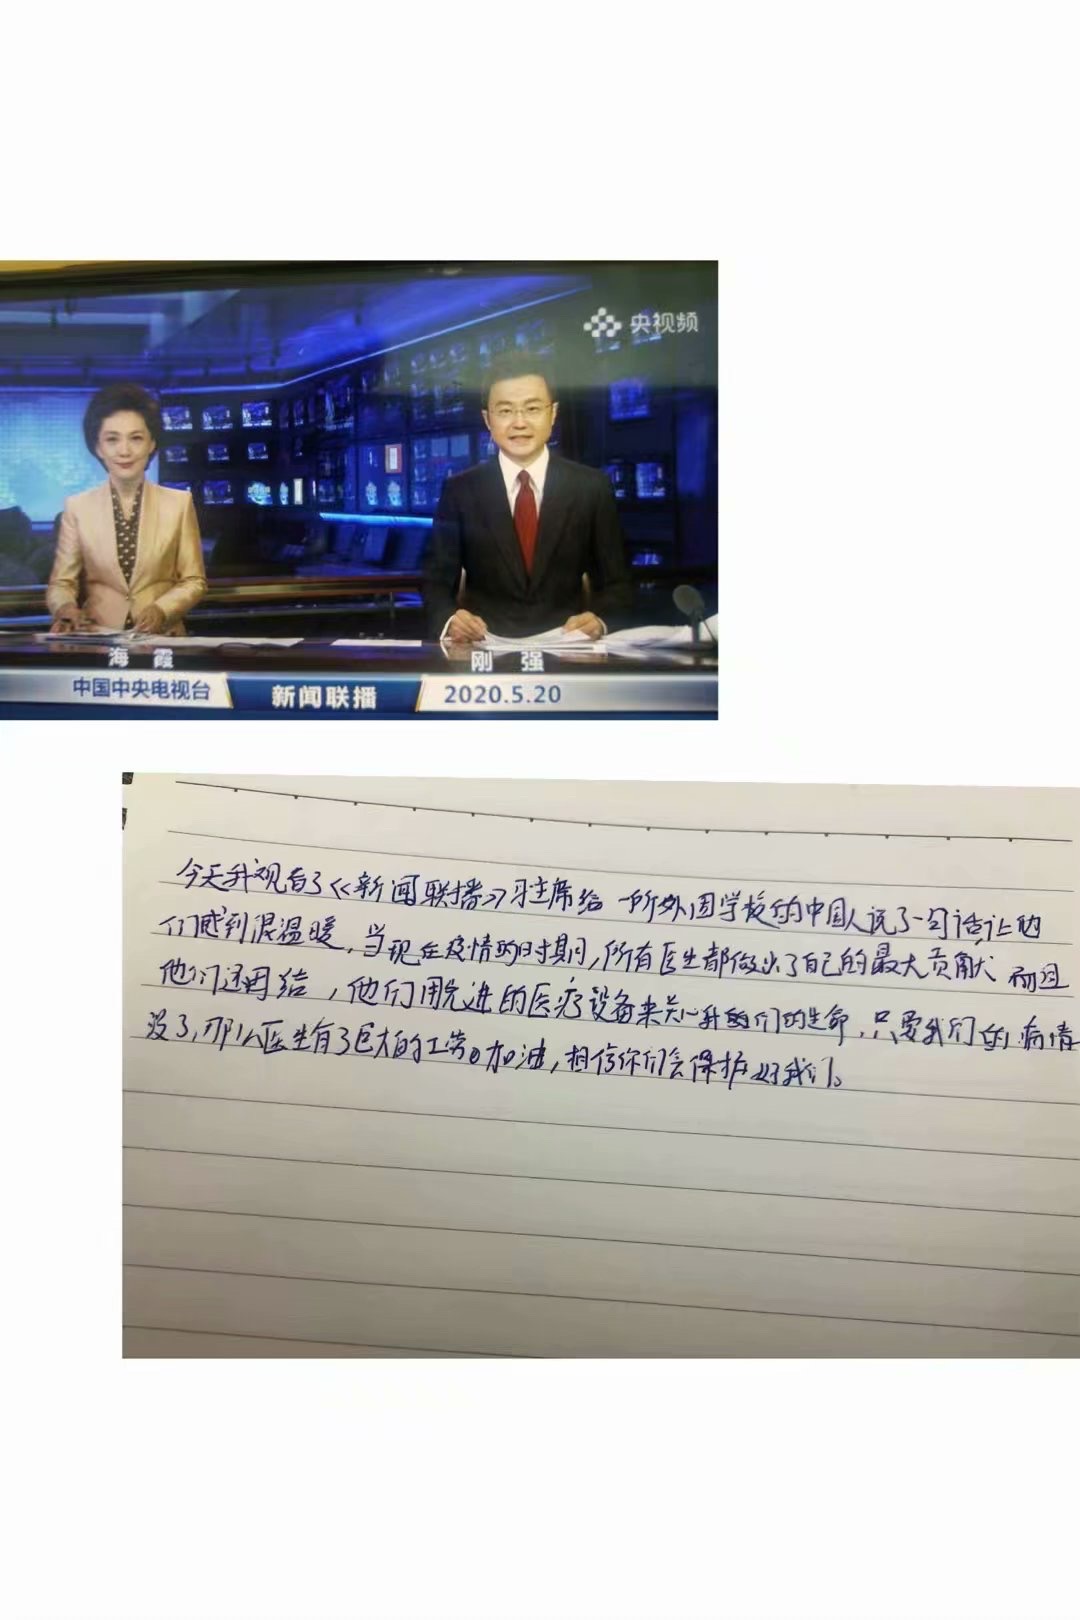 央视频
海 霞
刚 强
中国中央电视台
新闻联播
2020.5.20
今天我观看了《新闻联播》习主席给一所外国学校的中国人说了一句话让他
们感到很温暖,当现在疫情的时期间,所有医生都做出了自己的最大贡献 而且
他们还团结,他们用先进的医疗设备来关心我们的生命,只要我们的病情
没了,那么医生有了巨大的工劳。加油,相信你们会保护好我们。